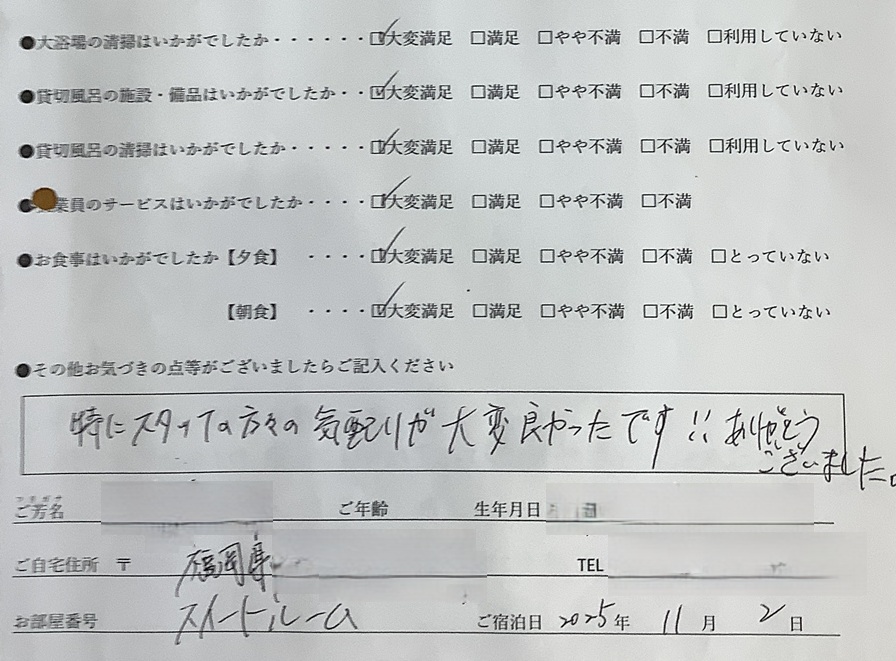 ●大浴場の清掃はいかがでしたか・・・・・・☑大変満足 □満足 □やや不満 □不満 □利用していない
●貸切風呂の施設・備品はいかがでしたか・・☑大変満足 □満足 □やや不満 □不満 □利用していない
●貸切風呂の清掃はいかがでしたか・・・・・☑大変満足 □満足 □やや不満 □不満 □利用していない
●業員のサービスはいかがでしたか・・・・☑大変満足 □満足 □やや不満 □不満
●お食事はいかがでしたか【夕食】 ・・・・☑大変満足 □満足 □やや不満 □不満 □とっていない
【朝食】 ・・・・☑大変満足 □満足 □やや不満 □不満 □とっていない
●その他お気づきの点等がございましたらご記入ください
特にスタッフの方々の気配りが大変良かったです!!ありがとう
ございました。
フリガナ
ご芳名 ご年齢 生年月日
ご自宅住所 〒 福岡県 TEL
お部屋番号 スイートルーム ご宿泊日 2025年 11月 2日